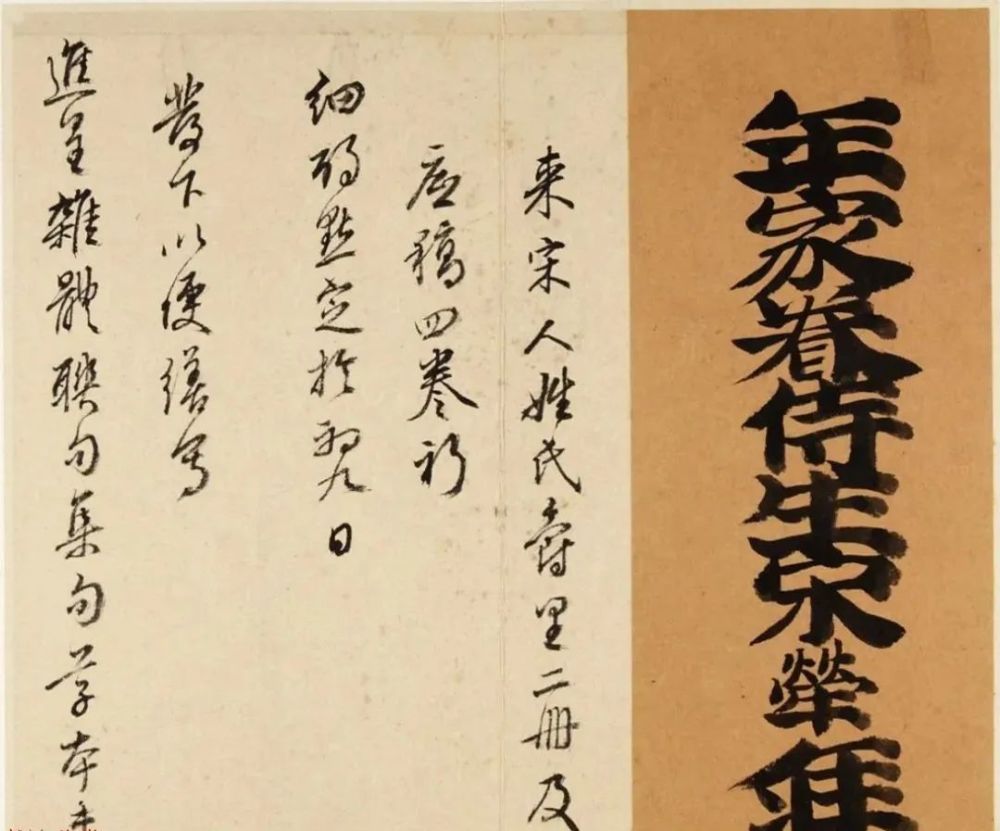 年家眷侍生宋犖
来宋人姓氏爵里二冊及
底稿四卷祈
細酌點定於初九日
發下以便繕寫
進呈雜體聯句集句草本